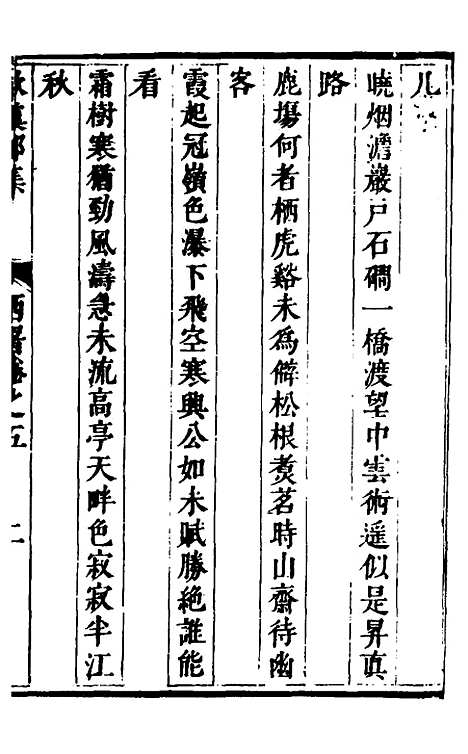 几
曉烟澹巖戸石磵一橋渡望中雲術遥似是昇眞
路
鹿塲何者栖虎谿未爲僻松根煑茗時山齋待幽
客
霞起冠嶺色瀑下飛空寒興公如未賦勝絶誰能
看
霜樹寒猶勁風濤急未流高亭天畔色寂寂半江
秋
集
二